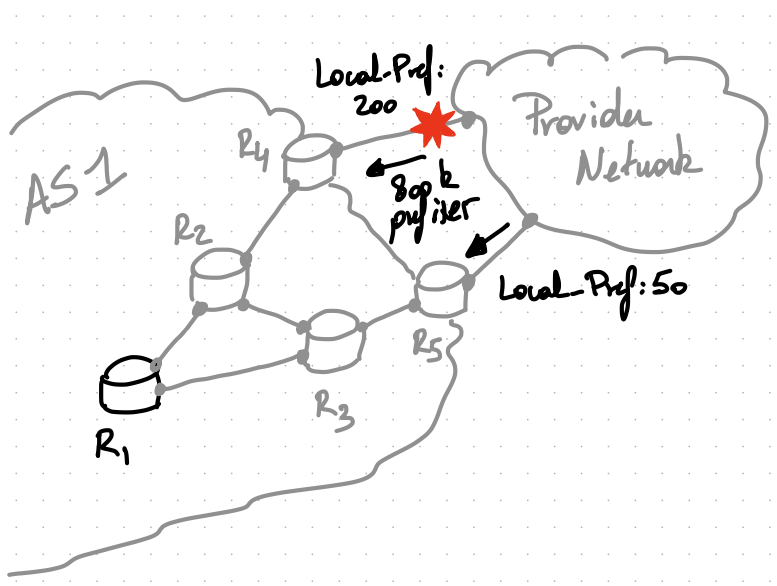 Local-Pref:
200
Provider
Network
R4
AS1
800k
prefixes
R2
Local_Pref: 50
R5
R3
R1